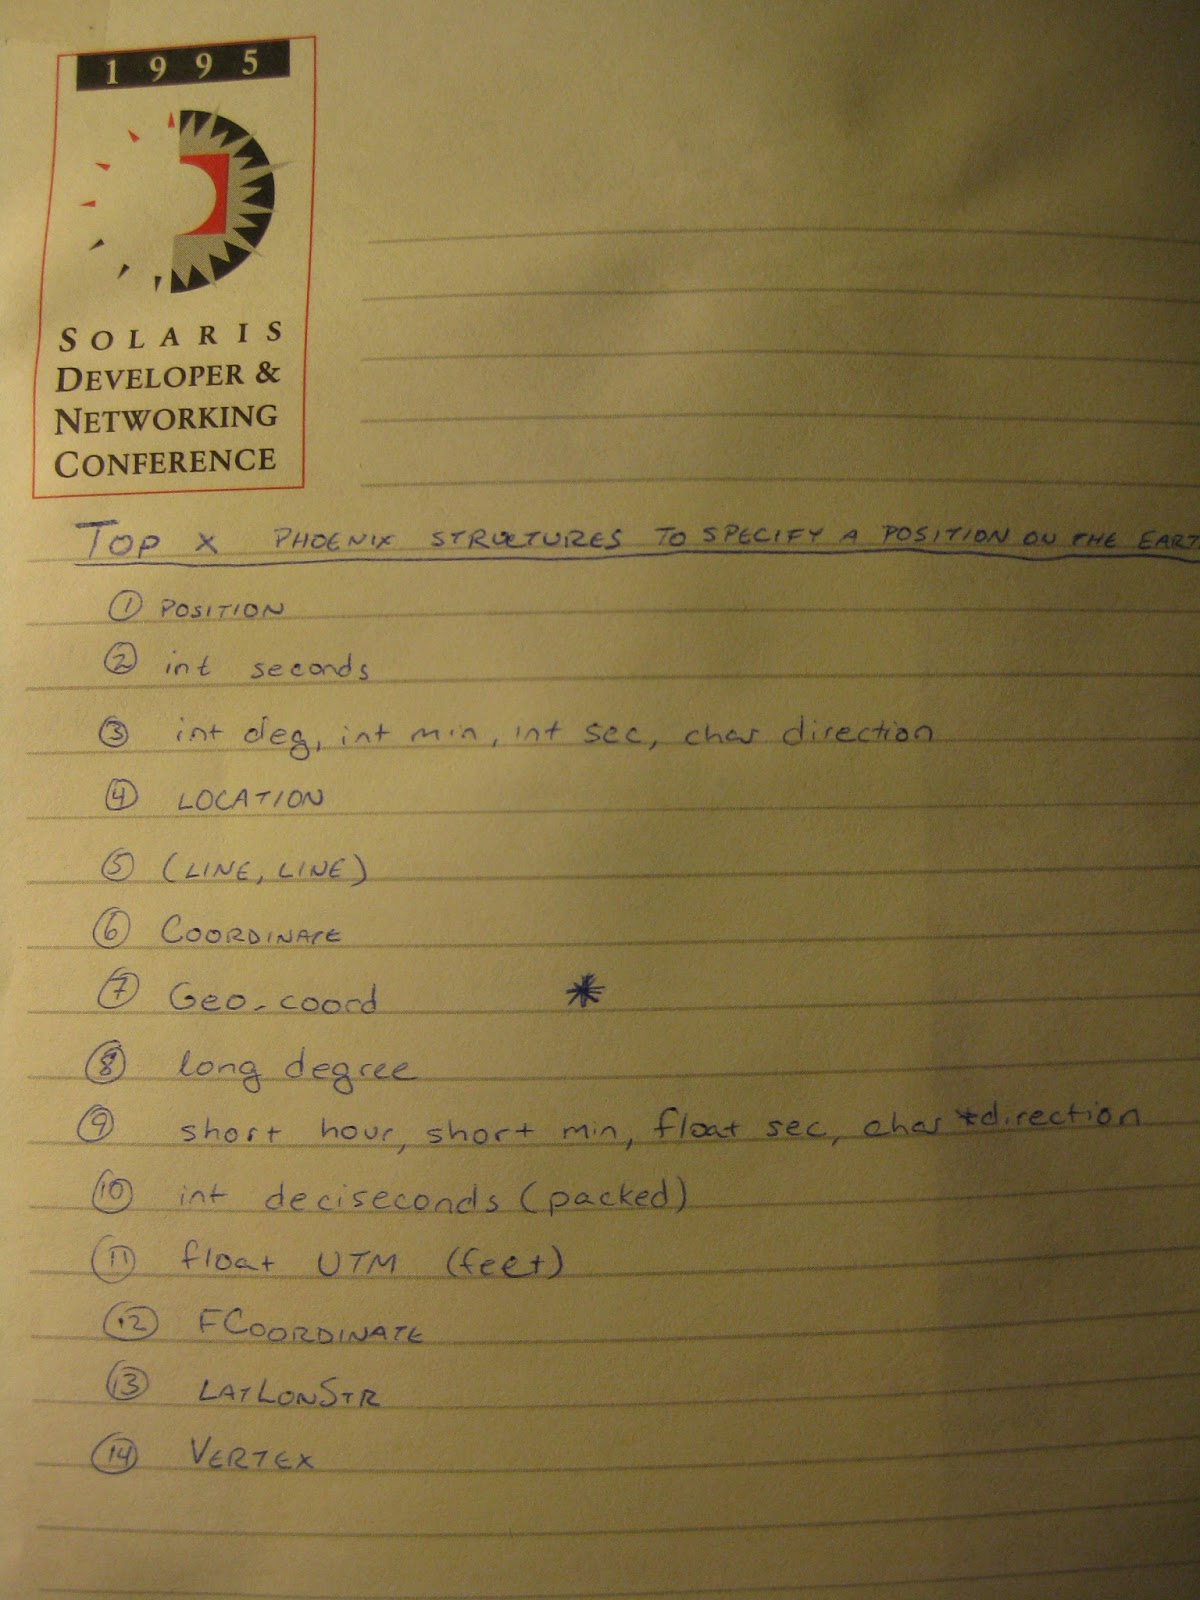 1995
SOLARIS
DEVELOPER &
NETWORKING
CONFERENCE
TOP X PHOENIX STRUCTURES TO SPECIFY A POSITION ON THE EART
① POSITION
② int seconds
③ int deg, int min, int sec, char direction
④ LOCATION
⑤ (LINE, LINE)
⑥ COORDINATE
⑦ Geo-coord *
⑧ long degree
⑨ short hour, short min, float sec, char *direction
⑩ int deciseconds (packed)
⑪ float UTM (feet)
⑫ FCOORDINATE
⑬ LATLONSTR
⑭ VERTEX